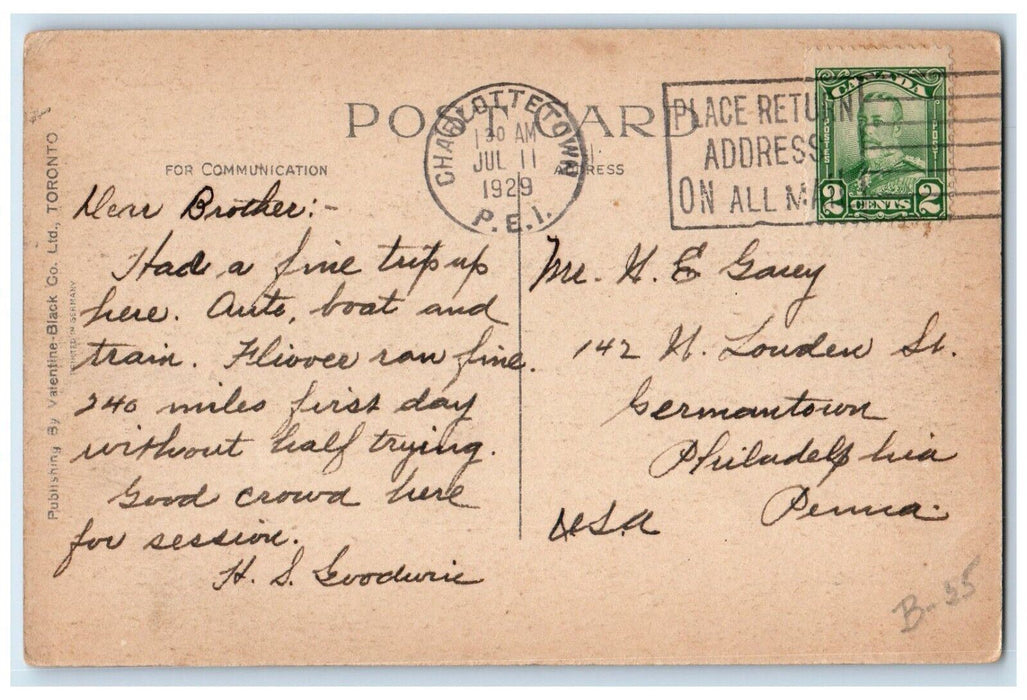 POST CARD
FOR COMMUNICATION
ADDRESS
CHARLOTTETOWN
30 AM
JUL 11
1929
P.E.I.
PLACE RETURN
ADDRESS
ON ALL MA
CANADA
POSTES
POST
2 CENTS 2
Publishing By Valentine-Black Co. Ltd., TORONTO
PRINTED IN GERMANY
Dear Brother:-
Had a fine trip up
here. Auto, boat and
train. Flivver ran fine.
240 miles first day
without half trying.
Good crowd here
for session.
H. S. Goodwin
Mr. H. E
142 N. Louden St.
Germantown
Philadelphia
Penna.
USA
B-25